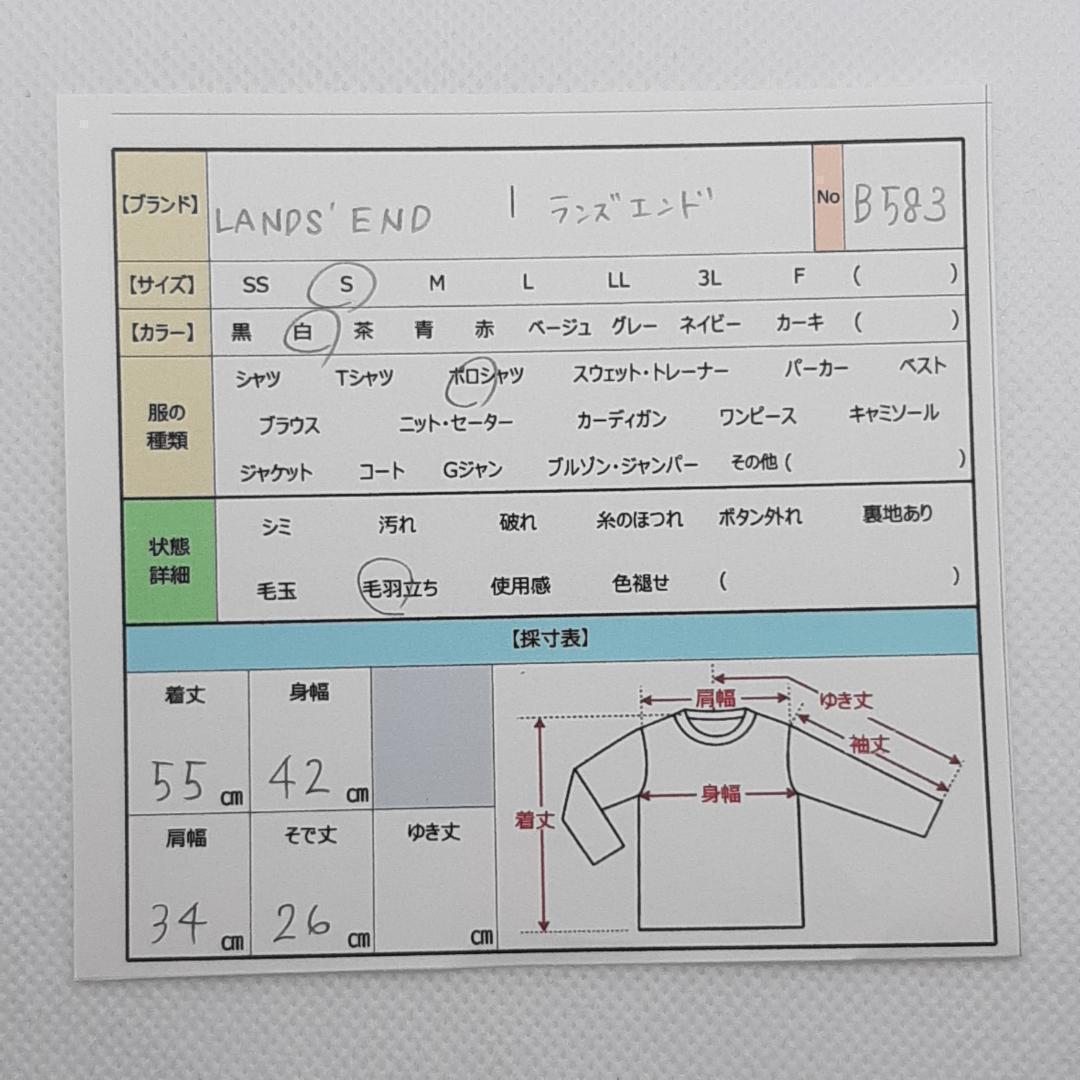 【ブランド】 LANDS' END | ランズエンド No B583
【サイズ】 SS S M L LL 3L F ( )
【カラー】 黒 白 茶 青 赤 ベージュ グレー ネイビー カーキ ( )
服の種類 シャツ Tシャツ ポロシャツ スウェット・トレーナー パーカー ベスト
ブラウス ニット・セーター カーディガン ワンピース キャミソール
ジャケット コート Gジャン ブルゾン・ジャンパー その他 ( )
状態詳細 シミ 汚れ 破れ 糸のほつれ ボタン外れ 裏地あり
毛玉 毛羽立ち 使用感 色褪せ ( )
【採寸表】
着丈 身幅
55 cm 42 cm
肩幅 そで丈 ゆき丈
34 cm 26 cm cm
肩幅 ゆき丈
袖丈
身幅
着丈